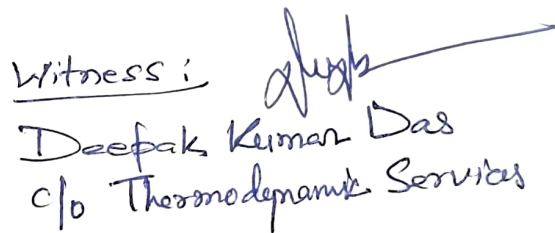 Witness :
Deepak Kumar Das
c/o Thermodynamik Services